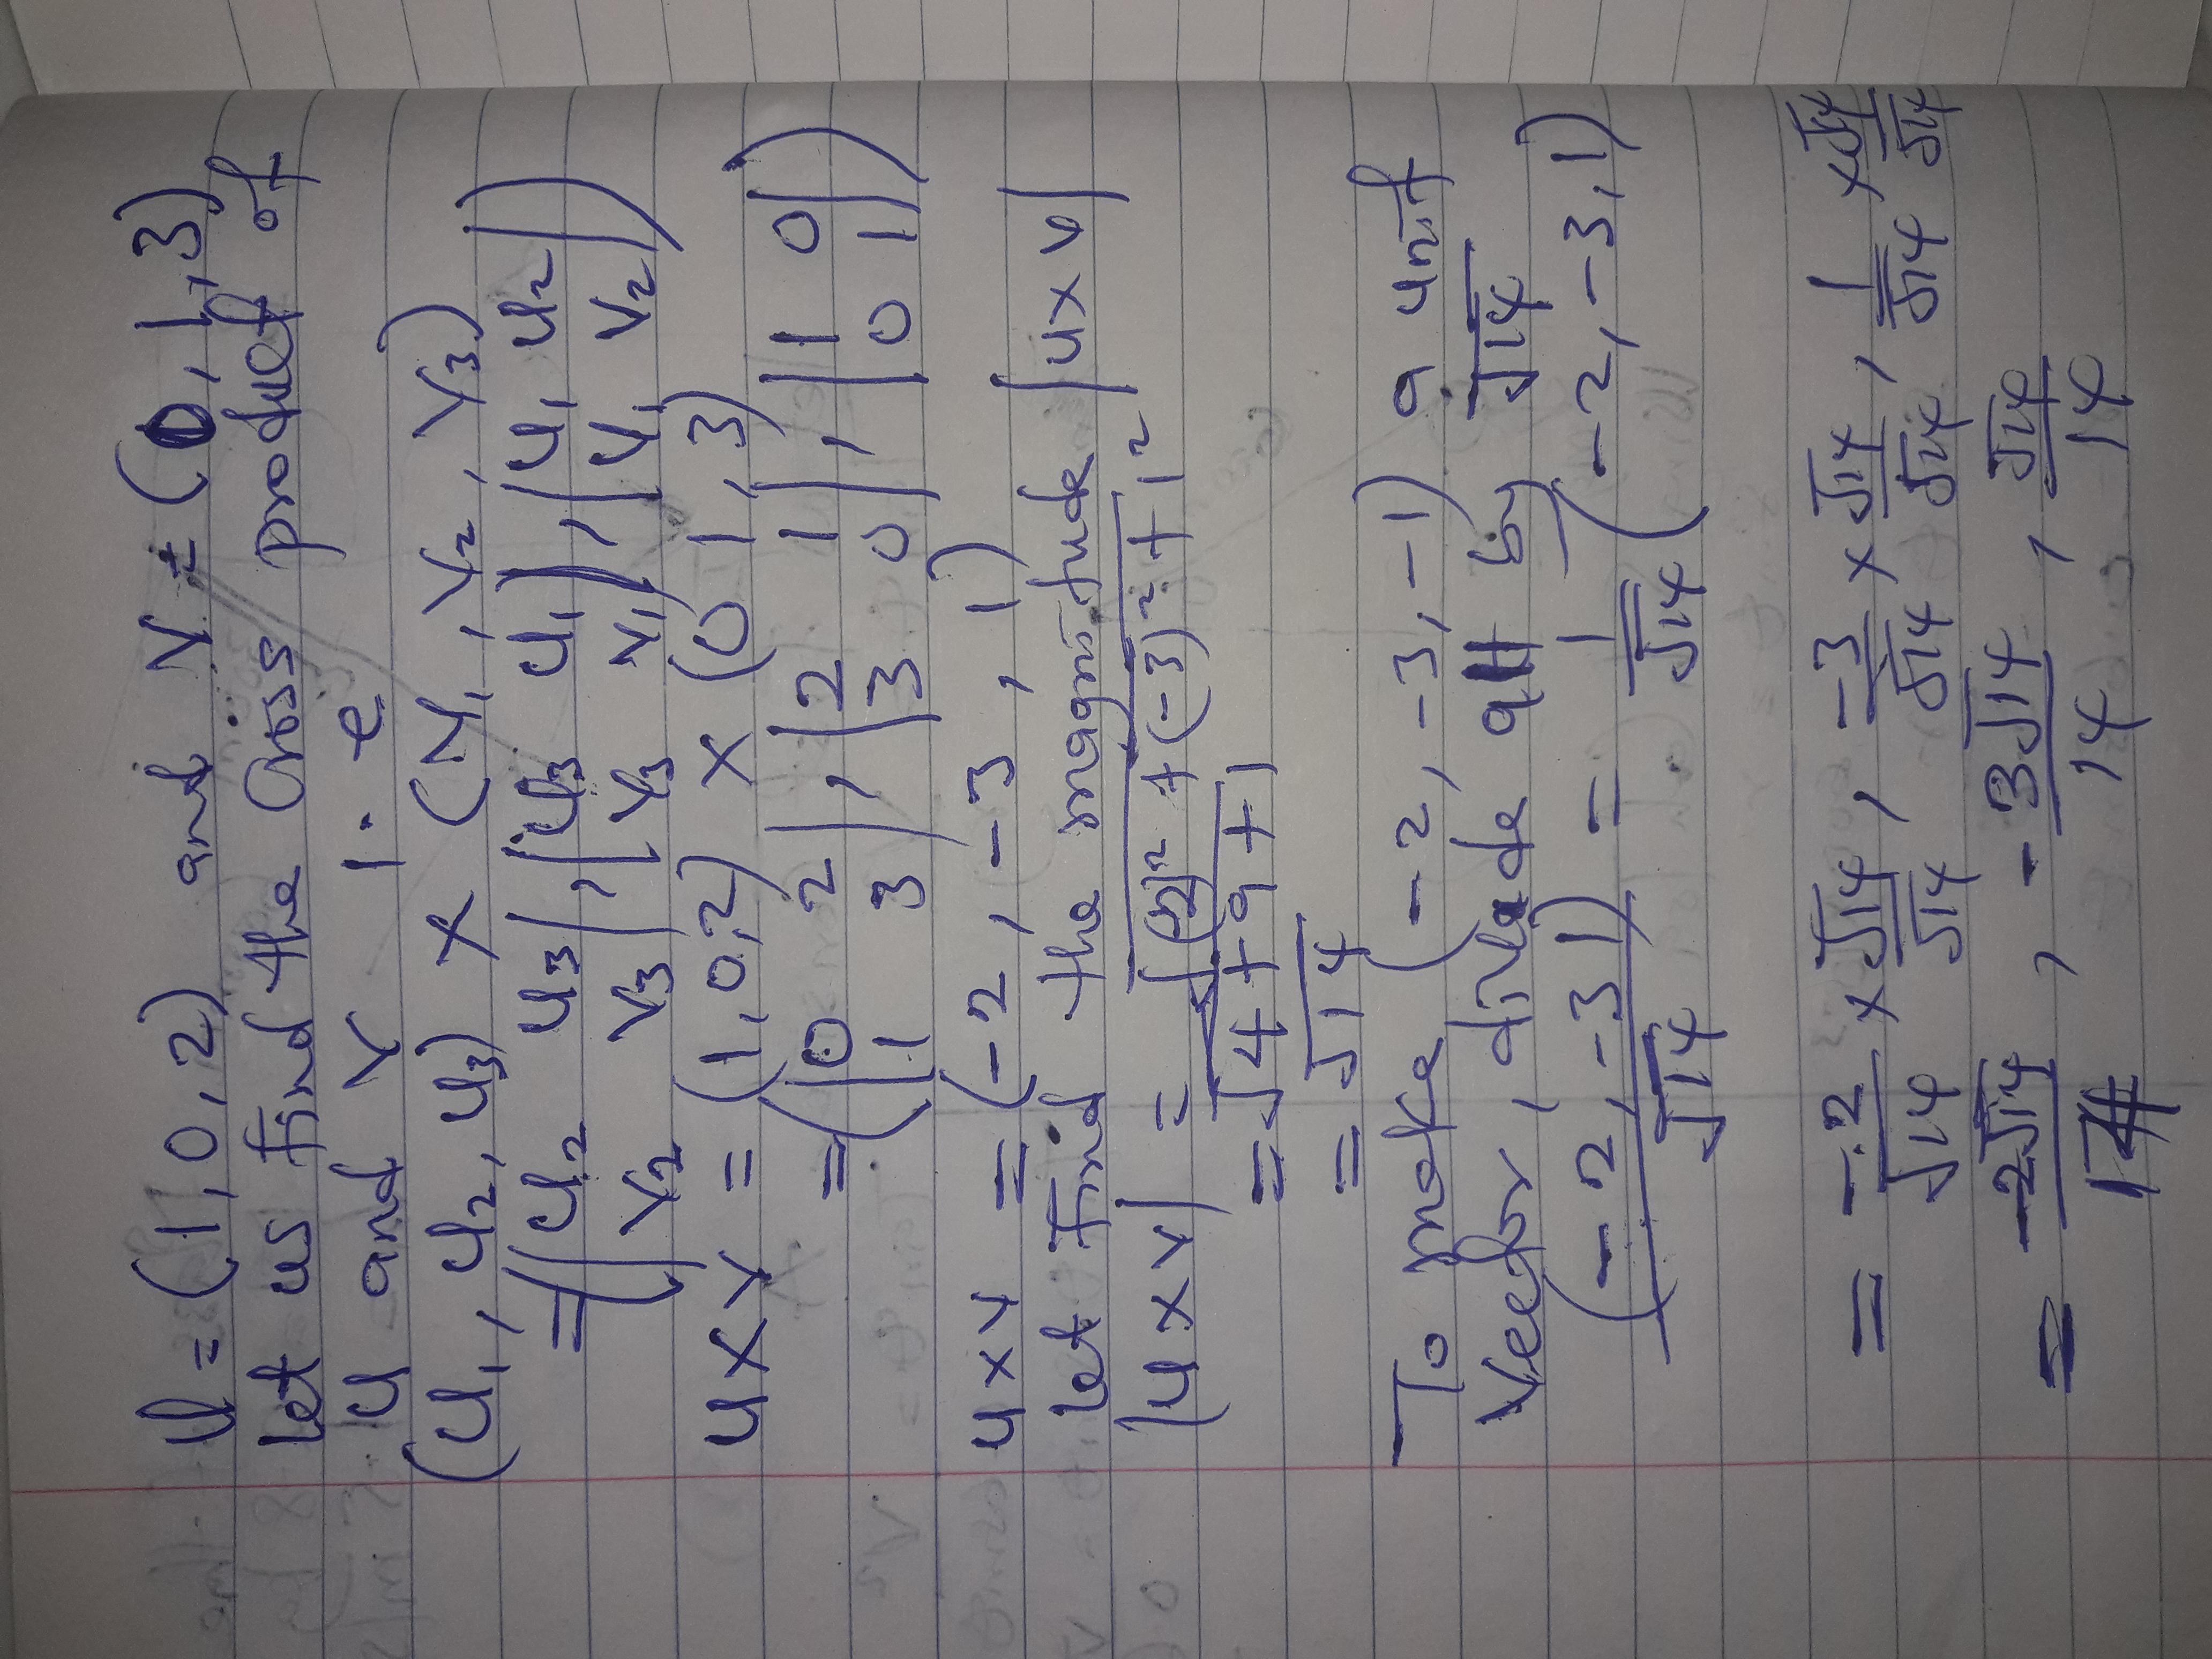 U = (1, 0, 2) and V = (0, 1, 3)
Let us find the cross product of
U and V i.e
(U₁, U₂, U₃) × (V₁, V₂, V₃)
= (|U₂ U₃|, |U₃ U₁|, |U₁ U₂|)
|V₂ V₃| |V₃ V₁| |V₁ V₂|
U×V = (1, 0, 2) × (0, 1, 3)
= (|0 2|, |2 1|, |1 0|)
|1 3| |3 0| |0 1|
U×V = (-2, -3, 1)
Let find the magnitude |U×V|
|U×V| = √(-2)² + (-3)² + 1²
= √4+9+1
= √14
To make (-2, -3, -1) a unit
Vector, divide all by √14
(-2, -3 1)/√14 = 1/√14 (-2, -3, 1)
= -2/√14 × √14/√14, -3/√14 × √14/√14, 1/√14 × √14/√14
= -2√14/14, -3√14/14, √14/14